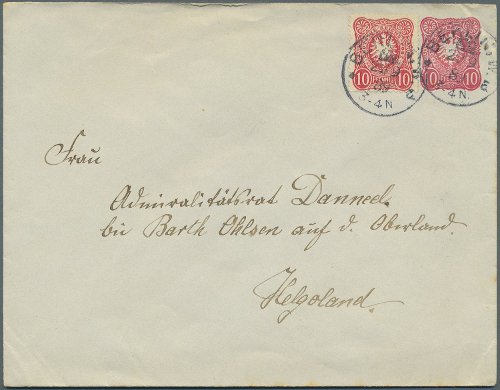 10 10 10 10
BERLIN
3-4N
4N
Frau
Admiralitätsrat Danneel.
bei Barth Ohlsen auf d. Oberland.
Helgoland.